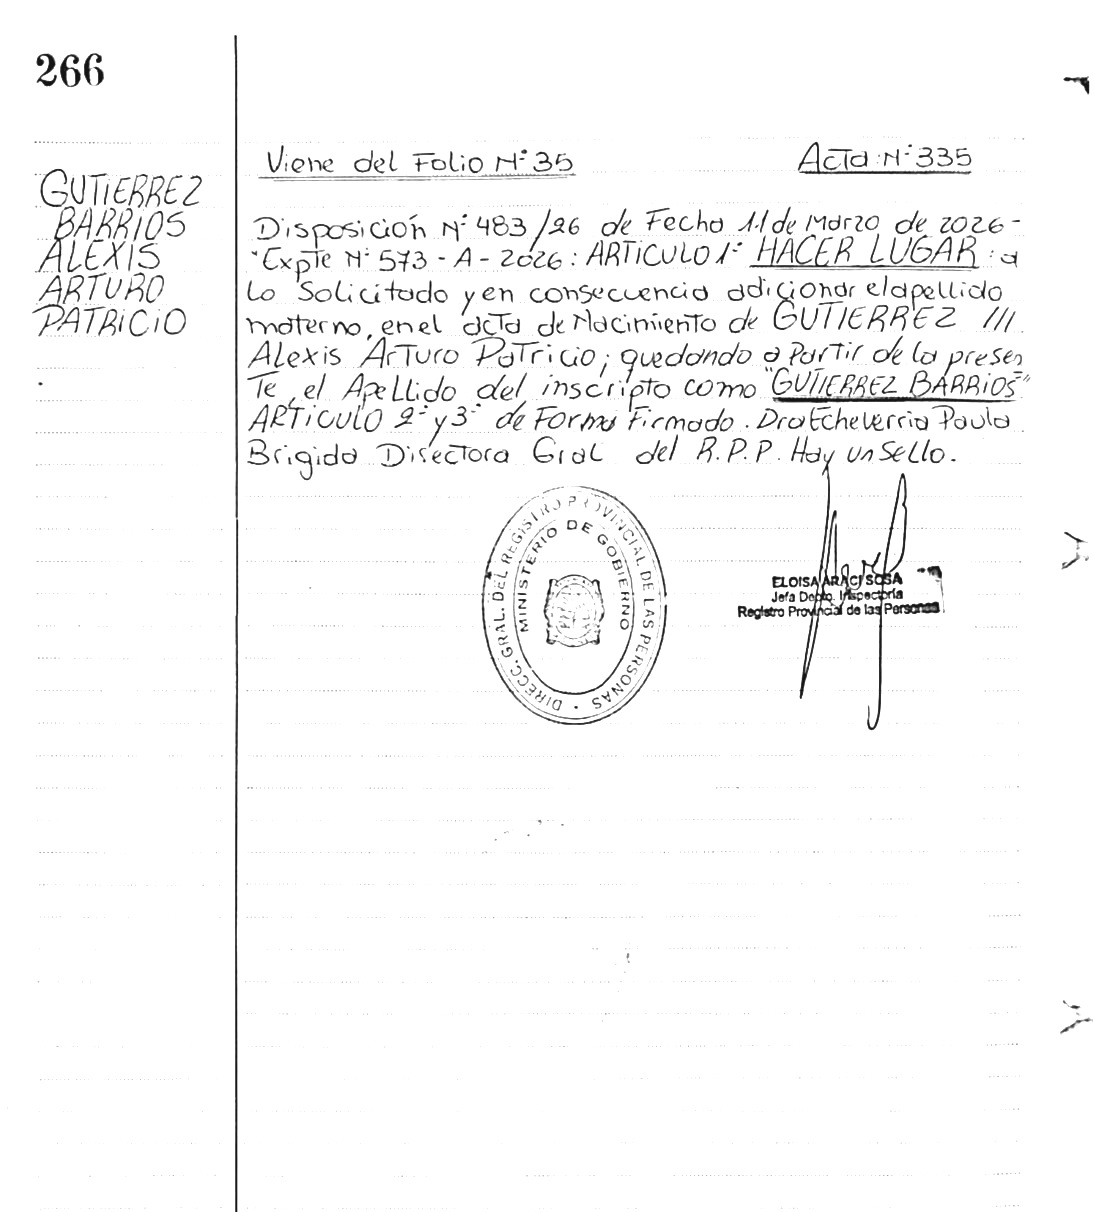 266
Viene del Folio Nº 35
Acta Nº 335
GUTIERREZ
BARRIOS
ALEXIS
ARTURO
PATRICIO
Disposición Nº 483/26 de Fecha 11 de Marzo de 2026-
"Expte Nº 573-A-2026: ARTICULO 1º HACER LUGAR: a
lo Solicitado y en consecuencia adicionar el apellido
materno, en el acta de Nacimiento de GUTIERREZ ///
Alexis Arturo Patricio; quedando a Partir de la presen
te, el Apellido del inscripto como "GUTIERREZ BARRIOS"
ARTICULO 2º y 3º de Forma Firmado. Dra Echeverria Paula
Brigida Directora Gral del R.P.P. Hay un Sello.
DIRECC. GRAL. DEL REGISTRO PROVINCIAL DE LAS PERSONAS
MINISTERIO DE GOBIERNO
ELOISA ARACI SOSA
Jefa Depto. Inspectoría
Registro Provincial de las Personas